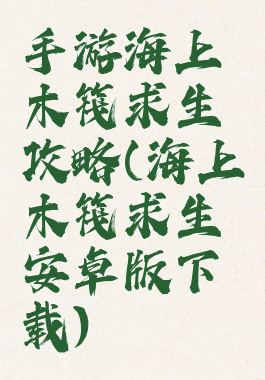 手游海上
木筏求生
攻略(海上
木筏求生
安卓版下
载)